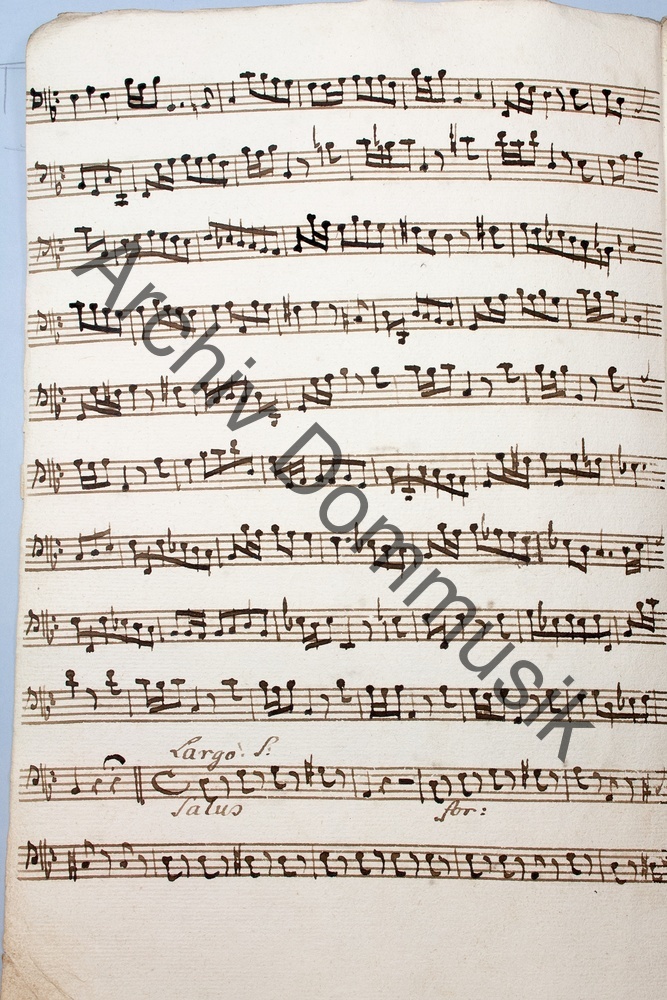 Archiv Dommusik
Largo. S:
Salus for: